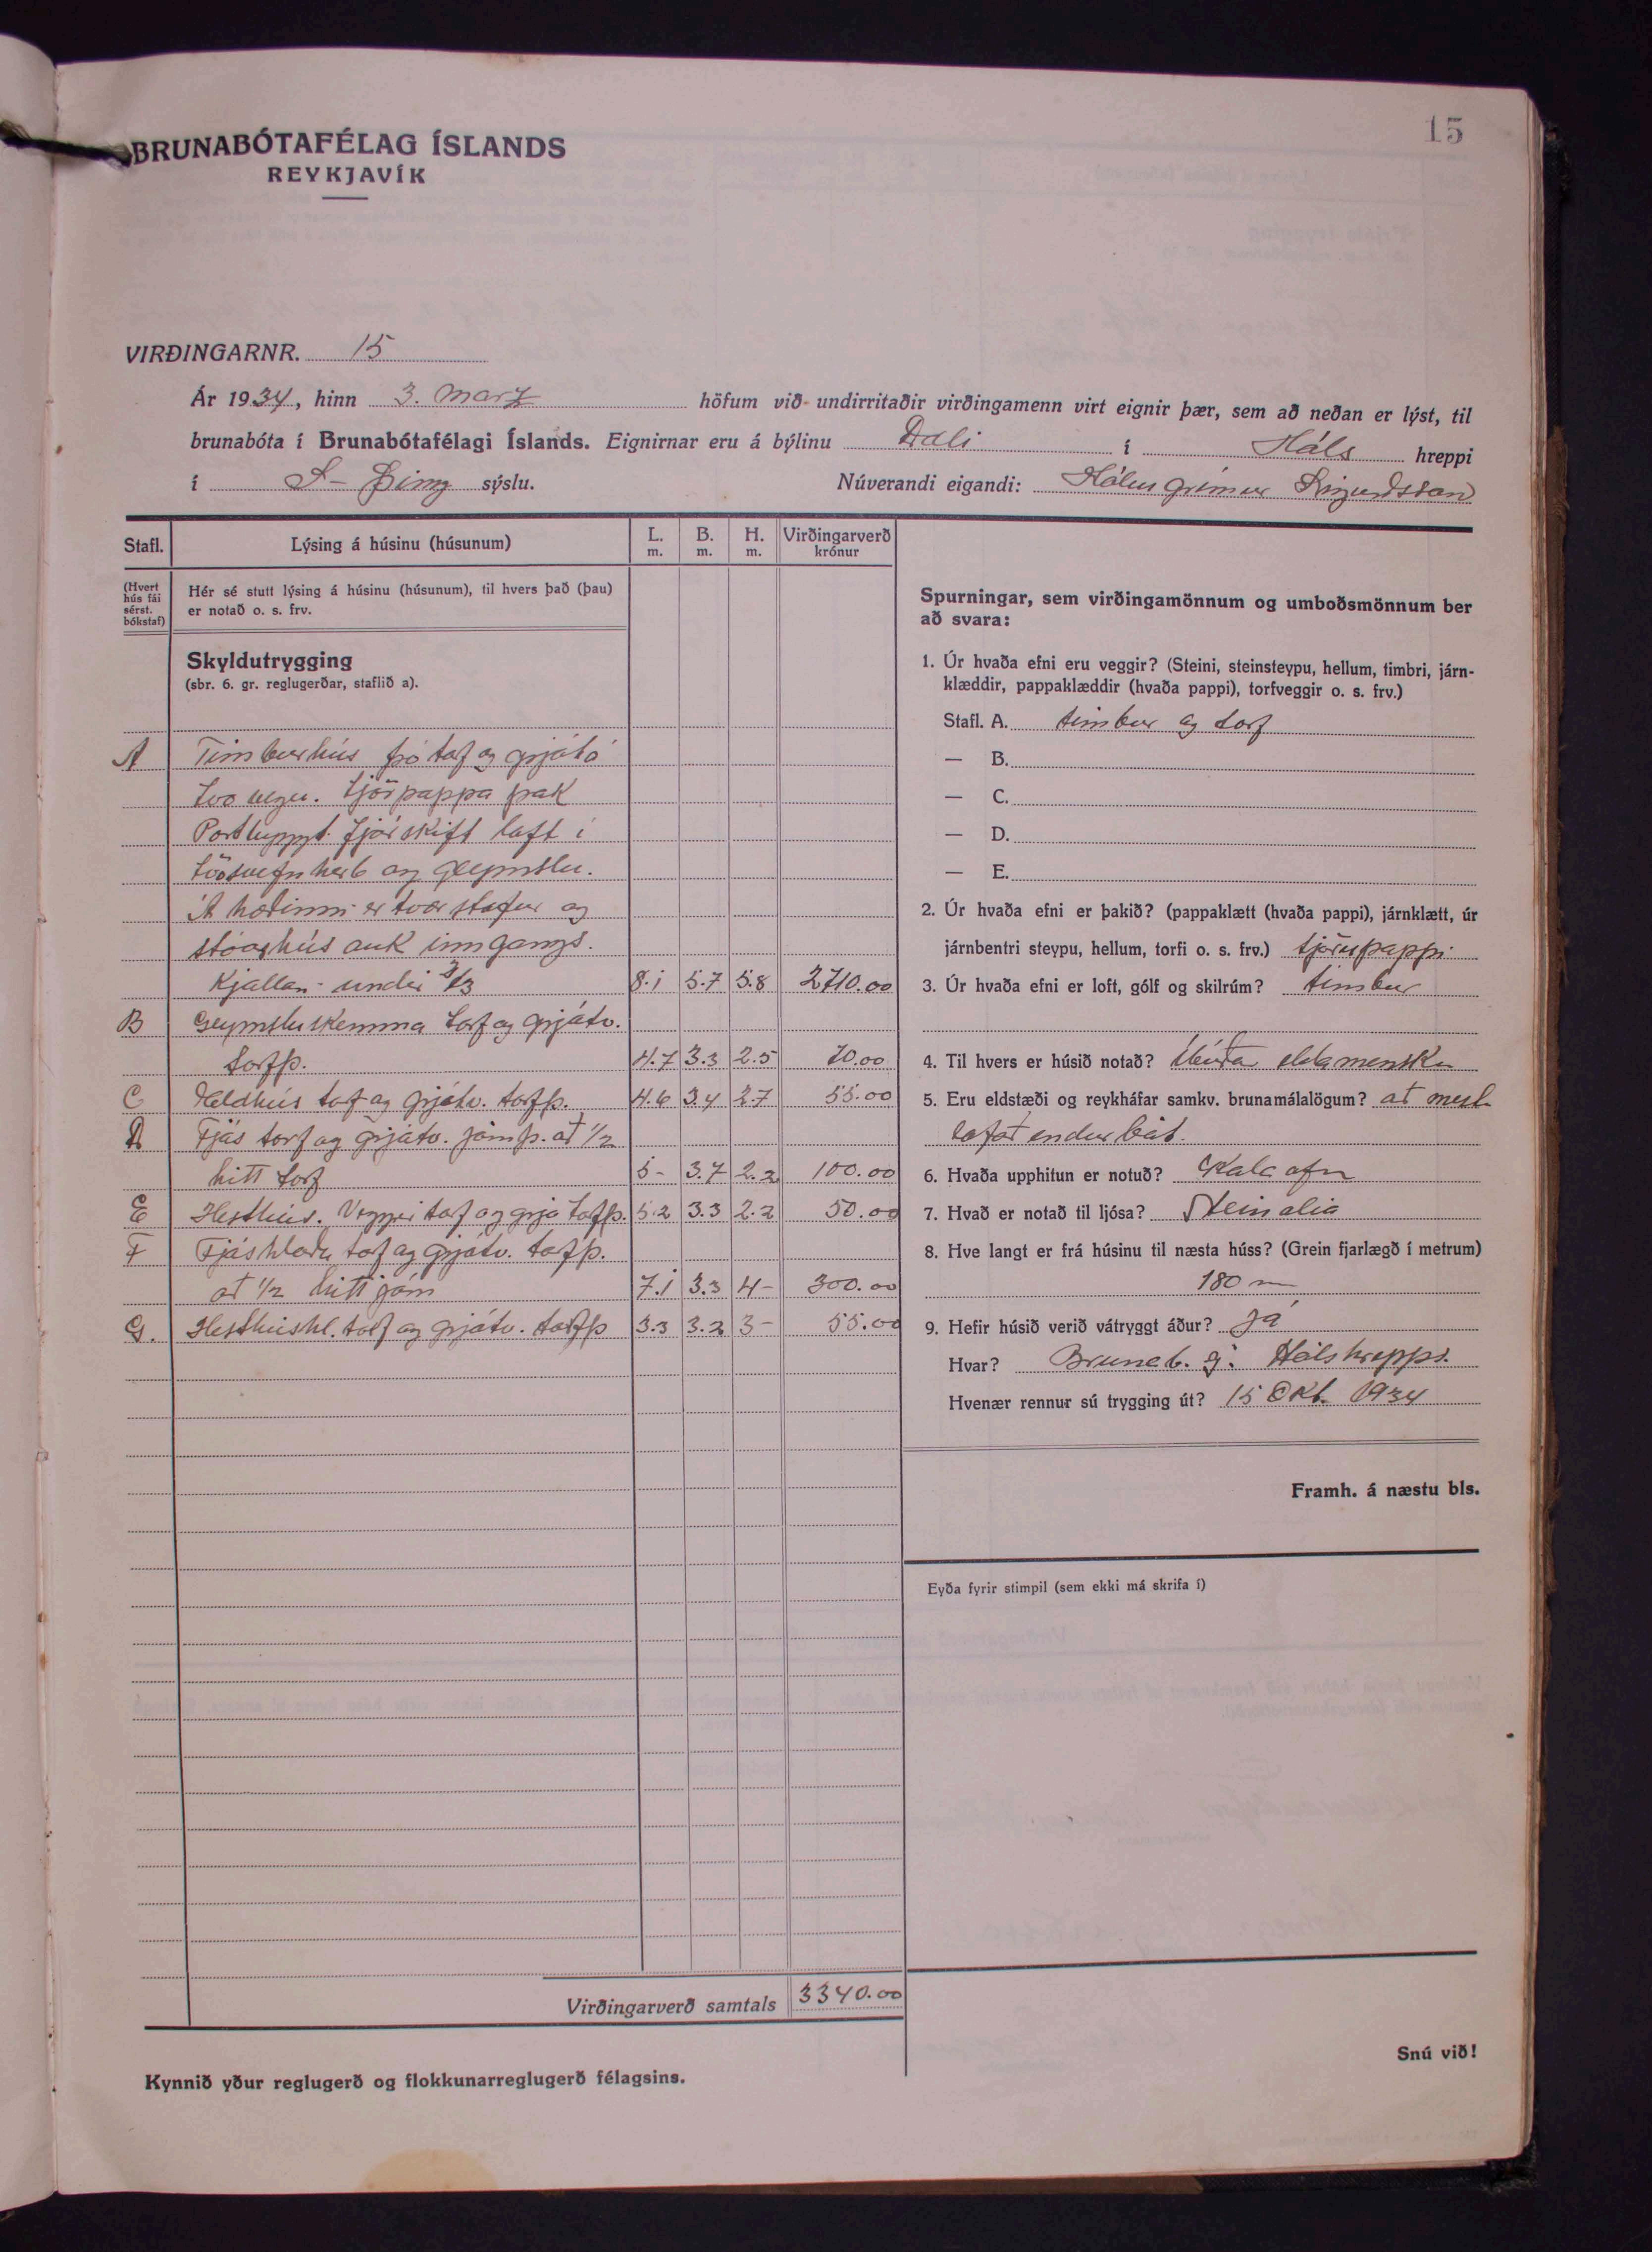 15
BRUNABÓTAFÉLAG ÍSLANDS
REYKJAVÍK
VIRÐINGARNR. 15
Ár 1934, hinn 3. Marz höfum við undirritaðir virðingamenn virt eignir þær, sem að neðan er lýst, til
brunabóta í Brunabótafélagi Íslands. Eignirnar eru á býlinu Dali í Háls hreppi
í S-Þing sýslu. Núverandi eigandi: Hólmgrímur Sigurdsson
Stafl. Lýsing á húsinu (húsunum) L. m. B. m. H. m. Virðingarverð krónur
(Hvert hús fái sérst. bókstaf)
Hér sé stutt lýsing á húsinu (húsunum), til hvers það (þau)
er notað o. s. frv.
Skyldutrygging
(sbr. 6. gr. reglugerðar, staflið a).
A Timburhús þó torf og grjót á
tvo vegu. tjörpappa þak
Portbyggt. fjórskift loft í
svefnherb og geymslu.
Á hæðinni er tvær stofur og
hús auk inngangs.
Kjallari undir 2/3 8.1 5.7 5.8 2710.00
B Geymsluskemma torf og grjótv.
torfþ. 4.7 3.3 2.5 70.00
C Eldhús torf og grjótv. torfþ. 4.6 3.4 2.7 55.00
D Fjós torf og grjótv. járnþ. að 1/2
hitt torf 5- 3.7 2.2 100.00
E Hesthús. Veggir torf og grjó torfþ. 5.2 3.3 2.2 50.00
F Fjóshlaða torf og grjótv. torfþ.
að 1/2 hitt járn 7.1 3.3 4- 300.00
G. Hesthúshl. torf og grjótv. torfþ 3.3 3.2 3- 55.00
Virðingarverð samtals 3340.00
Kynnið yður reglugerð og flokkunarreglugerð félagsins.
Spurningar, sem virðingamönnum og umboðsmönnum ber
að svara:
1. Úr hvaða efni eru veggir? (Steini, steinsteypu, hellum, timbri, járn-
klæddir, pappaklæddir (hvaða pappi), torfveggir o. s. frv.)
Stafl. A. timbur og torf
— B.
— C.
— D.
— E.
2. Úr hvaða efni er þakið? (pappaklætt (hvaða pappi), járnklætt, úr
járnbentri steypu, hellum, torfi o. s. frv.) tjörupappi
3. Úr hvaða efni er loft, gólf og skilrúm? timbur
4. Til hvers er húsið notað? Íbúðar eldamensku
5. Eru eldstæði og reykháfar samkv. brunamálalögum? að mest
endurbót.
6. Hvaða upphitun er notuð? Kola ofn
7. Hvað er notað til ljósa? Steinolia
8. Hve langt er frá húsinu til næsta húss? (Grein fjarlægð í metrum)
180 m
9. Hefir húsið verið vátryggt áður? já
Hvar? Brunab. sj. Hálshrepps.
Hvenær rennur sú trygging út? 15 Okt. 1934
Framh. á næstu bls.
Eyða fyrir stimpil (sem ekki má skrifa í)
Snú við!